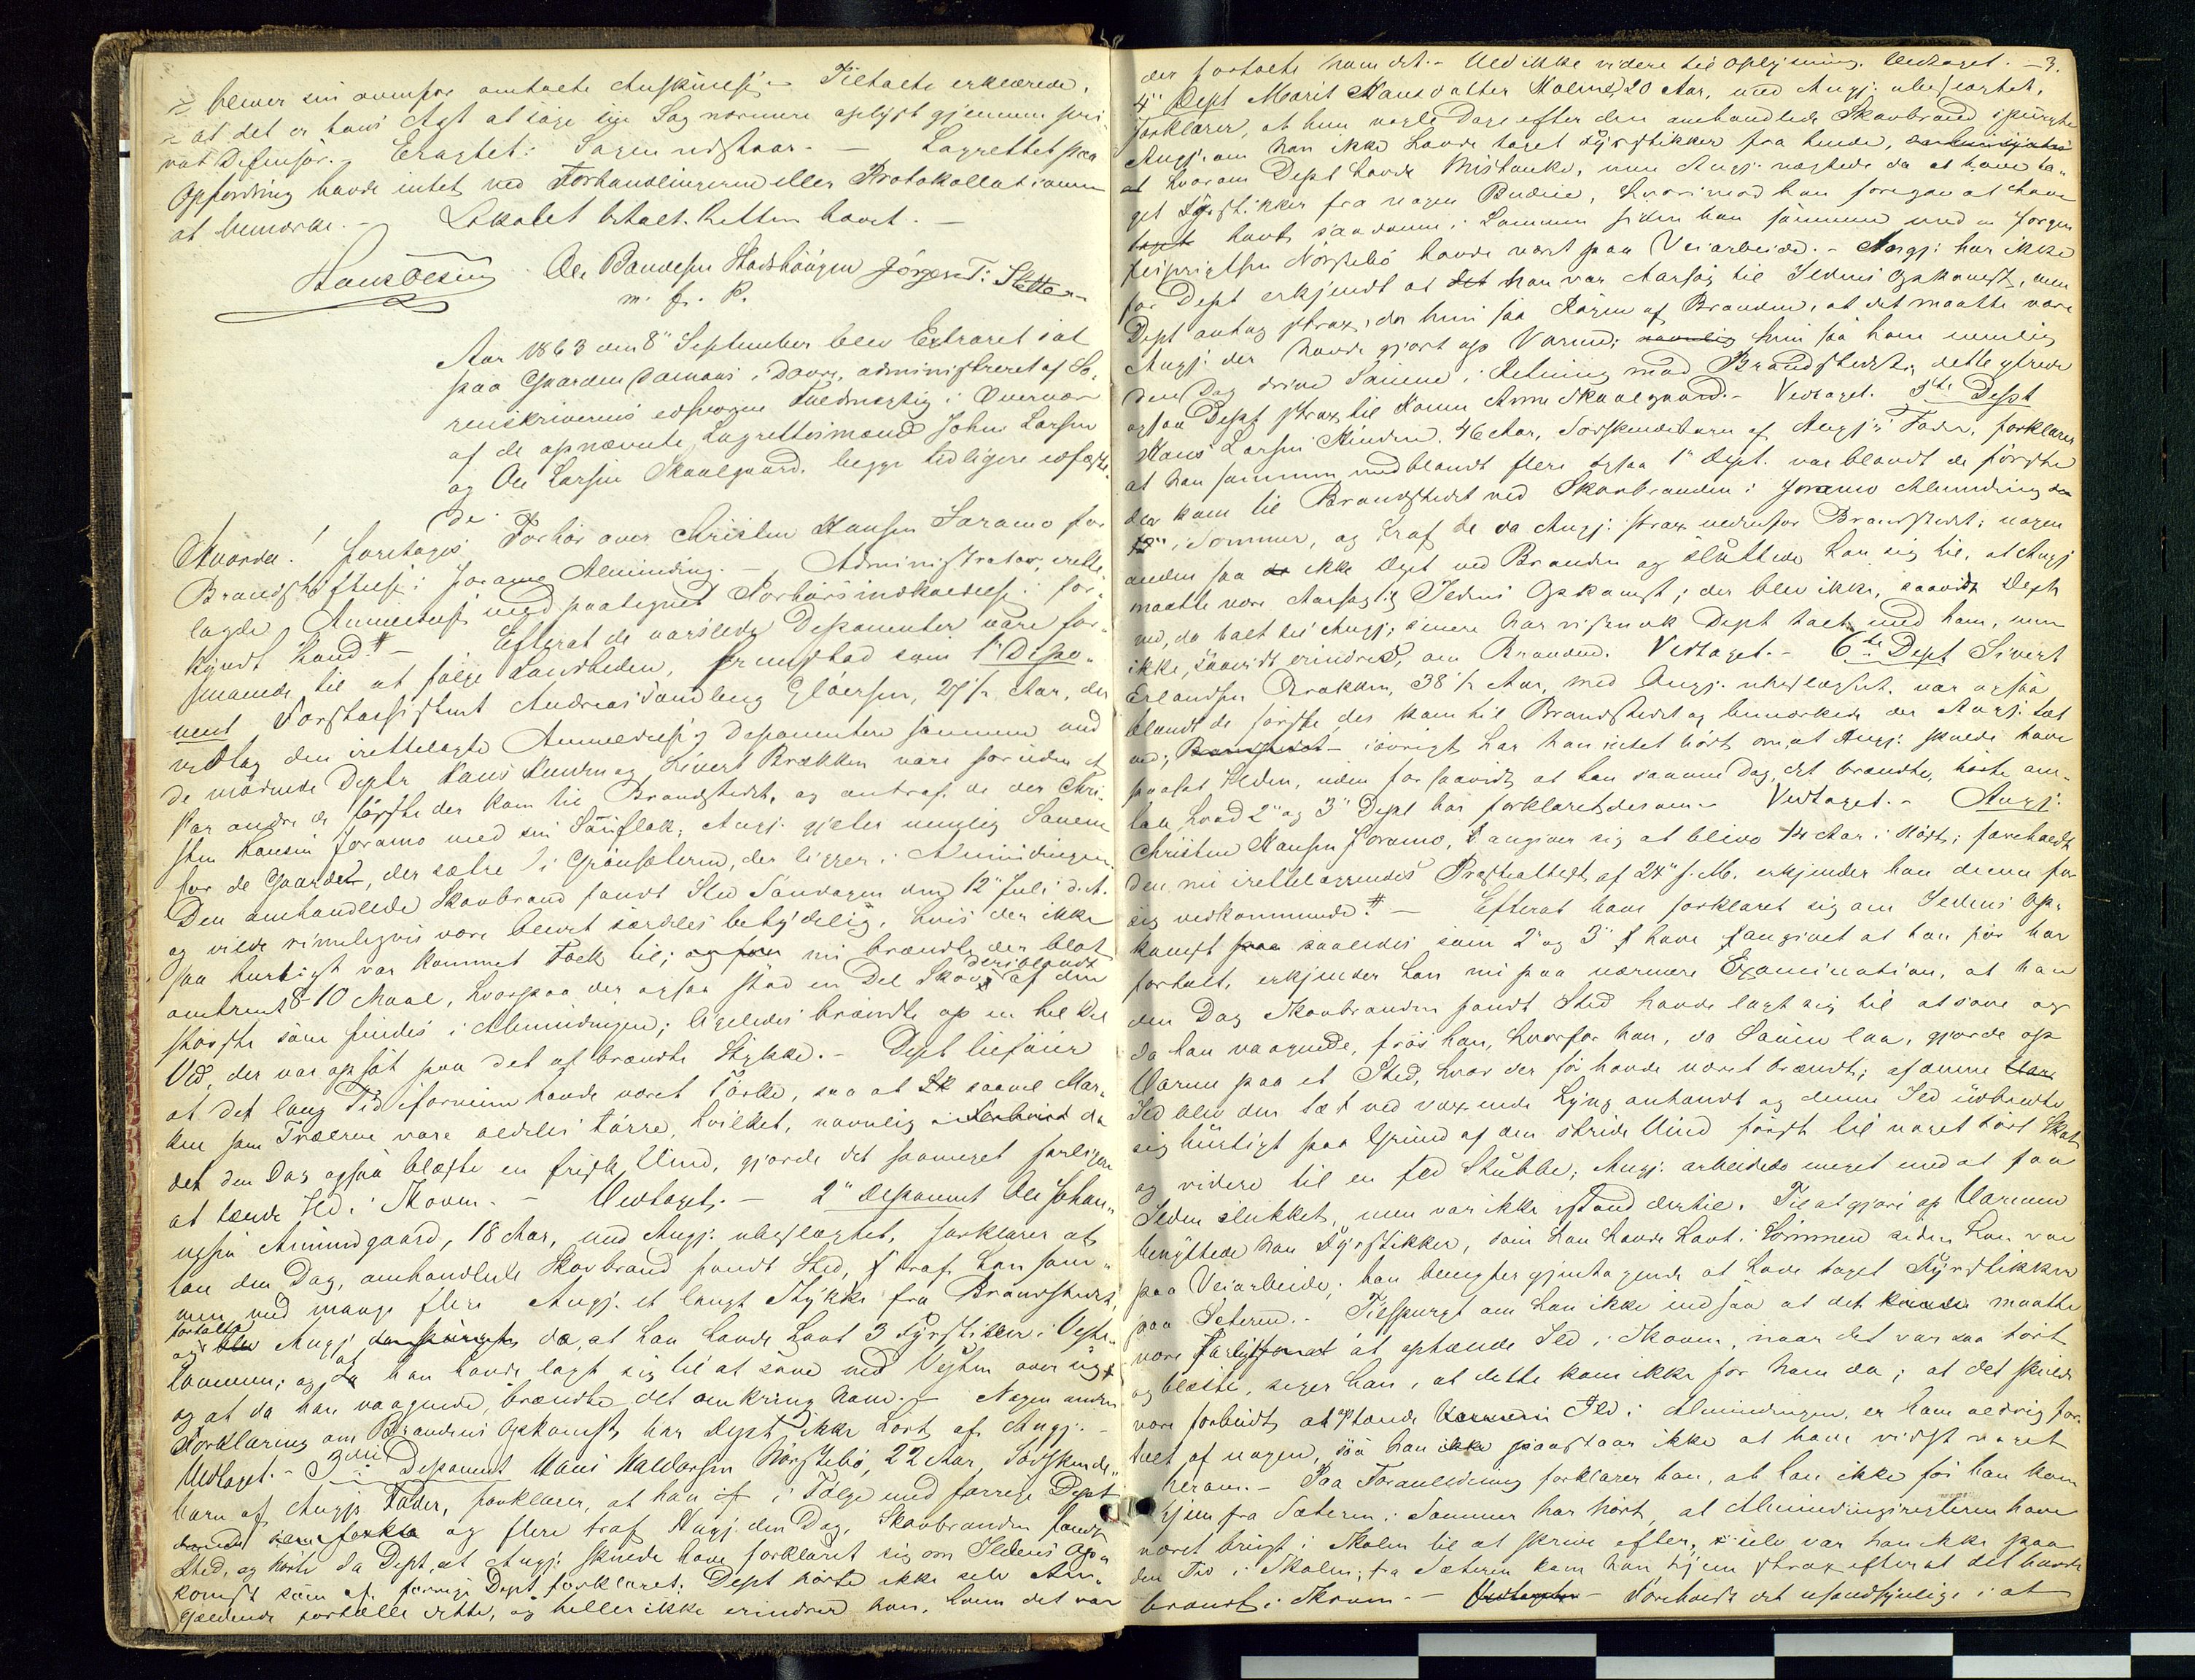 blever sin ovenfor omtalte Anskuelse. Tiltalte erklærede,
at det er hans Agt at søge sin Sag nærmere oplyst gjennem pri-
vat Defensor. Eragtet: Sagen udstaar. — Lagrettet paa
Opfordring havde intet ved Forhandlingerne eller Protokollationen
at bemærke. — Lokalet betalt. Retten hævet. —
Ole Jørgen T: Sletten
m. f. P.
Aar 1863 den 8de September blev Extraret sat
paa Gaarden i Dovre, administreret af So-
renskriverens edsvorne Fuldmægtig i Overvær
af de opnævnte Lagrettesmænd John Larsen
og Ole Larsen Skaalgaard, begge tidligere edfæste
de.
Hvorda! foretoges Forhør over Christen Hansen Joramo for
Brandstiftelse i Joramo Alminding. — Administrator irette-
lagde Anmeldelse med paategnet Forhørsindkaldelse: for-
kyndt — Efterat de varslede Deponenter vare for-
manede til at følge Sandheden, fremstod som 1ste Depo-
nent Forstassistent Andreas Sandberg Gløersen, 27½ Aar, der
vedtog den irettelagte Anmeldelse; Deponenten sammen med
de mødende Depter Hans Kindn og Sivert Brækken vare foruden et
Par andre de første der kom til Brandstedet, og antraf de der Chri-
sten Hansen Joramo med sin Saueflok; Angj. gjæter nemlig Sauene
for de Gaarde, der sætre i Grønsæteren, der ligger i Almindingen.
Den omhandlede Skovbrand fandt Sted Søndagen den 12te Juli d. A.
og vilde rimeligvis være blevet særdeles betydelig, hvis der ikke
saa hurtigt var kommet Folk til; nu brændte der blot
deriblandt
omtrent 8-10 Maal, hvorpaa der ogsaa stod en Del Skov af den
største som findes i Almindingen; ligeledes brændte op en hel Del
Ved, der var opsat paa det afbrændte Stykke. — Dept tilføier
at det lang Tid iforveien havde været Tørke, saa at saavel Mar-
ken som Træerne vare aldeles tørre, hvilket, navnlig da
det den Dag ogsaa blæste en frisk Vind, gjorde det saameget farligere
at tænde Ild i Skoven. — Vedtaget. — 2den Deponent Ole Johan-
nesen Amundgaard, 18 Aar, med Angj. ubeslægtet, forklarer at
han den Dag, omhandlede Skovbrand fandt Sted, traf han sam-
men med mange flere Angj. et langt Stykke fra Brandstedet,
fortalte
og Angj. da, at han havde havt 3 Fyrstikker i Veste-
lommen; og at han havde lagt sig til at sove ved Vesten over sig
og at da han vaagnede, brændte det omkring ham. — Nogen anden
Forklaring om Brandens Opkomst har Dept ikke hørt af Angj. —
Vedtaget. — 3die Deponent Hans Haldorsen Nørstebø, 22 Aar, Sødskende-
barn af Angjs Fader, forklarer, at han i Følge med forrige Dept
og flere traf Angj. den Dag, Skovbranden fandt
Sted, og hørte da Dept, at Angj. skulde have forklaret sig om Ildens Op-
komst som af forrige Dept forklaret. Dept hørte ikke selv An-
gjældende fortælle dette, og heller ikke erindrer han, hvem det var
der fortalte ham det. — Ved ikke videre til Oplysning. Vedtaget. — 3.
4de Dept Marit Hansdatter Holme, 20 Aar, med Angj. ubeslægtet,
forklarer, at hun nogle Dage efter den omhandlede Skovbrand spurgte
Angj. om han ikke havde taget Fyrstikker fra hende,
hvorom Dept havde Mistanke, men Angj. nægtede da at have ta-
get Fyrstikker fra nogen Budeie, hvorimod han foregav at have
havt saadanne i Lommen siden han sammen med en Jørgen
Nørstebø havde været paa Veiarbeide. — Angj. har ikke
for Dept erkjendt at han var Aarsag til Ildens Opkomst, men
Dept antog strax, da hun saa Røgen af Branden, at det maatte være
Angj. der havde gjort op Varme; hun saa ham nemlig
den Dag drive Sauene i Retning mod Brandstedet; dette ytrede
ogsaa Dept strax til Konen Anne Skaalgaard. — Vedtaget. 5te Dept
Hans Larsen Kinden, 46 Aar, Sødskendebarn af Angjs Fader, forklarer
at han sammen med blandt flere ogsaa 1ste Dept. var blandt de første
der kom til Brandstedet ved Skovbranden i Joramo Alminding
i Sommer, og traf de da Angj. strax nedenfor Brandstedet; nogen
anden saa de ikke Dept ved Branden og sluttede han sig til, at Angj.
maatte være Aarsag til Ildens Opkomst; der blev ikke, saavidt Dept
ved, da talt til Angj.; senere har vistnok Dept talt med ham, men
ikke, saavidt erindres, om Branden. Vedtaget. — 6te Dept Sivert
Erlandsen Brækken, 38½ Aar, med Angj. ubeslægtet, var ogsaa
blandt de første, der kom til Brandstedet og bemærkede der Angj. tæt
ved; iøvrigt har han intet hørt om, at Angj. skulde have
paasat Ilden, uden forsaavidt at han samme Dag, det brændte, hørte om-
tale, hvad 2den og 3die Dept har forklaret derom. — Vedtaget. — Angj.
Christen Hansen Joramo, angiver sig at blive 14 Aar i Høst; foreholdt
den nu irettelæggendes Præsteattest af 24de f. M. erkjender han denne for
sig vedkommende. — Efterat have forklaret sig om Ildens Op-
komst saaledes som 2den og 3die have angivet at han før har
fortalt, erkjender han nu paa nærmere Examination, at han
den Dag Skovbranden fandt Sted havde lagt sig til at sove og
da han vaagnede, frøs han, hvorfor han, da Sauene laa, gjorde op
Varme paa et Sted, hvor der før havde været brændt; af denne
Ild blev den tæt ved voxende Lyng antændt og denne Ild udbredte
sig hurtigt paa Grund af den stride Vind først til noget tørt Skat
og videre til en fed Stubbe; Angj. arbeidede meget med at faa
Ilden slukket, men var ikke istand dertil. Til at gjøre op Varmen
benyttede han Fyrstikker, som han havde havt i Lommen siden han var
paa Veiarbeide; han benegter gjentagende at have taget Fyrstikker
paa Sæteren. — Tilspurgt om han ikke indsaa at det maatte
være farligt at optænde Ild i Skoven, naar det var saa tørt
og blæste, siger han, at dette kom ikke for ham da; at det skulde
være forbudt at optænde Ild i Almindingen, er ham aldrig for-
talt af nogen, saa han paastaar ikke at have vidst noget
herom. — Paa Foranledning forklarer han, at han ikke før han kom
hjem fra Sæteren i Sommer har hørt, at Almindingsreglerne have
været bragt i Skolen til at skrive efter, selv var han ikke paa
den Tid i Skolen; fra Sæteren kom han hjem strax efterat det havde
brændt i Skoven. — Foreholdt det usandsynlige i at